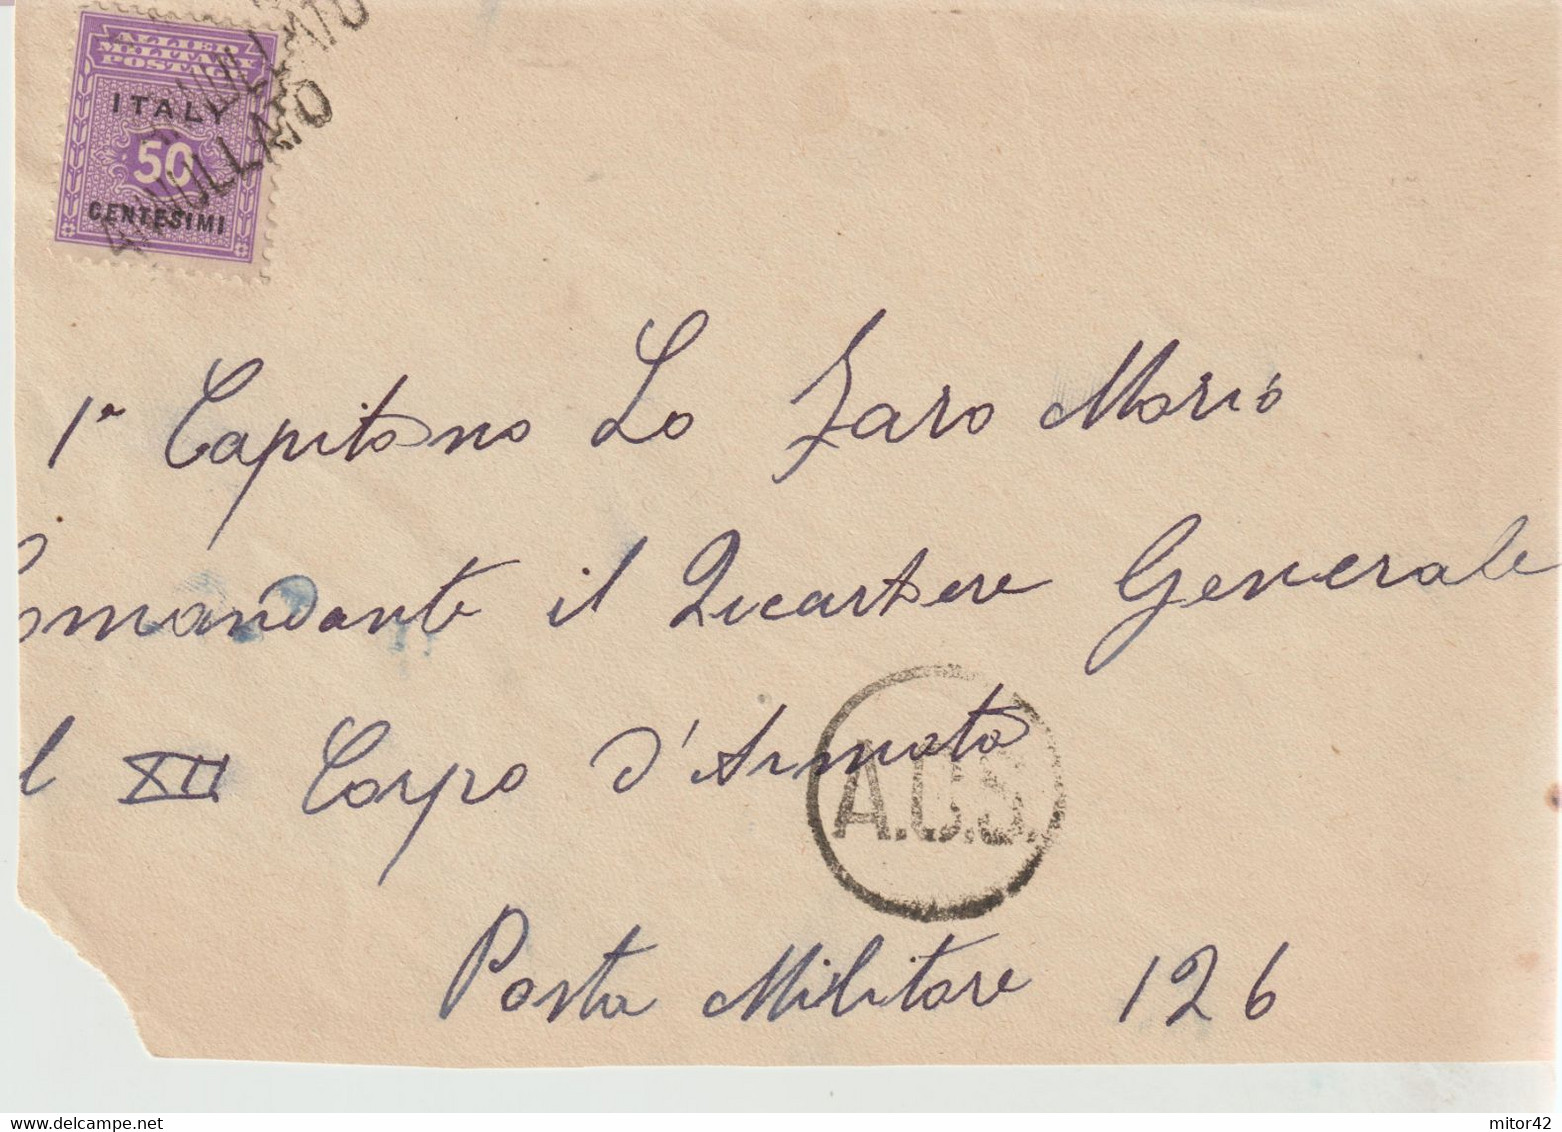 ALLIED
MILITARY
POSTAGE
ITALY
50
CENTESIMI
ANNULLATO
ANNULLATO
1° Capitano Lo Faro Mario
Comandante il Quartiere Generale
l XII Corpo d'Armata
A.C.S.
Posta Militare 126
mitor42